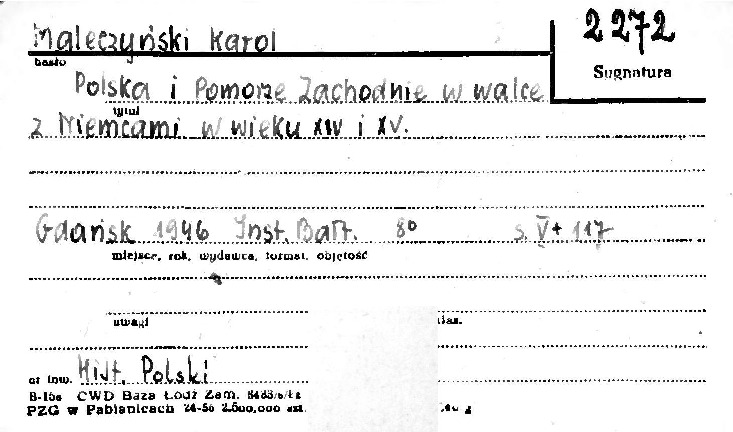 Maleczyński Karol
2272
hasło
Sygnatura
Polska i Pomorze Zachodnie w walce
tytuł
z Niemcami w wieku XIV i XV.
Gdańsk 1946 Inst. Bałt. 8° s. V + 117
miejsce, rok, wydawca, format, objętość
uwagi
nr inw. Hist. Polski
B-15a CWD Baza Łódź Zam.
PZG w Pabianicach 24-56 2.500.000 szt.